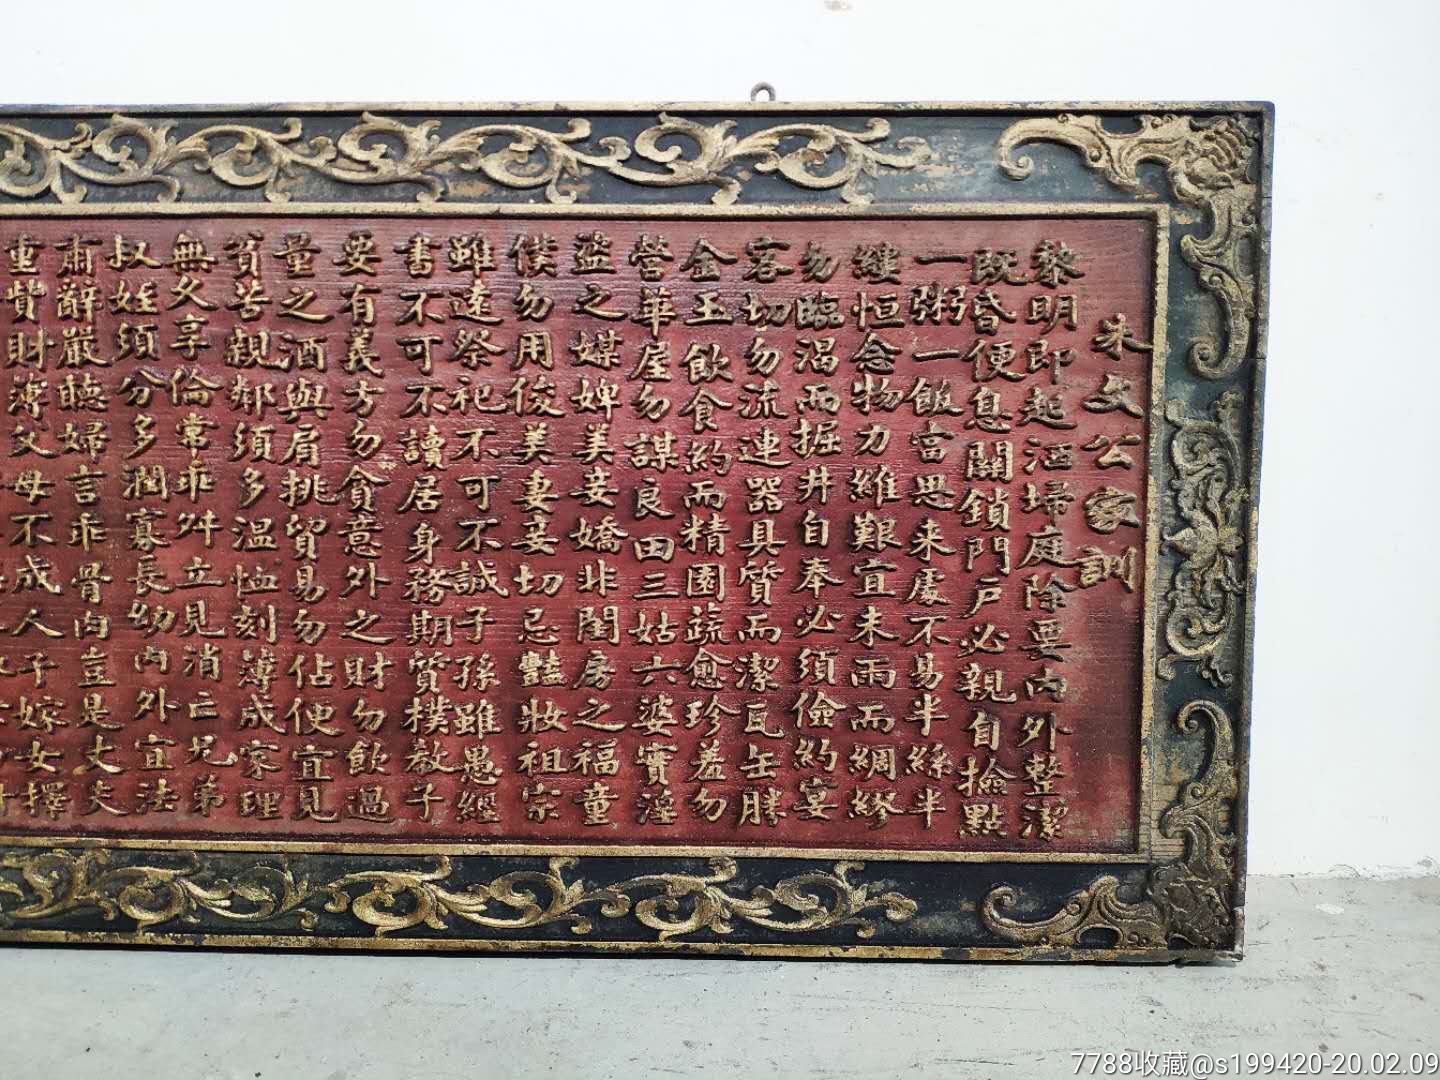 朱文公家訓
黎明即起洒埽庭除要内外整潔
既昏便息關鎖門户必親自撿點
一粥一飯當思来處不易半絲半
縷恒念物力維艱宜未雨而綢繆
勿臨渴而掘井自奉必須儉約宴
客切勿流連器具質而潔瓦缶勝
金玉飲食約而精園蔬愈珍羞勿
營華屋勿謀良田三姑六婆實淫
盜之媒婢美妾嬌非閨房之福童
僕勿用俊美妻妾切忌豔妝祖宗
雖遠祭祀不可不誠子孫雖愚經
書不可不讀居身務期質樸教子
要有義方勿貪意外之財勿飲過
量之酒與肩挑貿易勿佔便宜見
貧苦親鄰須多温恤刻薄成家理
無久享倫常乖舛立見消亡兄弟
叔姪須分多潤寡長幼内外宜法
肅辭嚴聽婦言乖骨肉豈是丈夫
重貲財薄父母不成人子嫁女擇
7788收藏@s199420-20.02.09